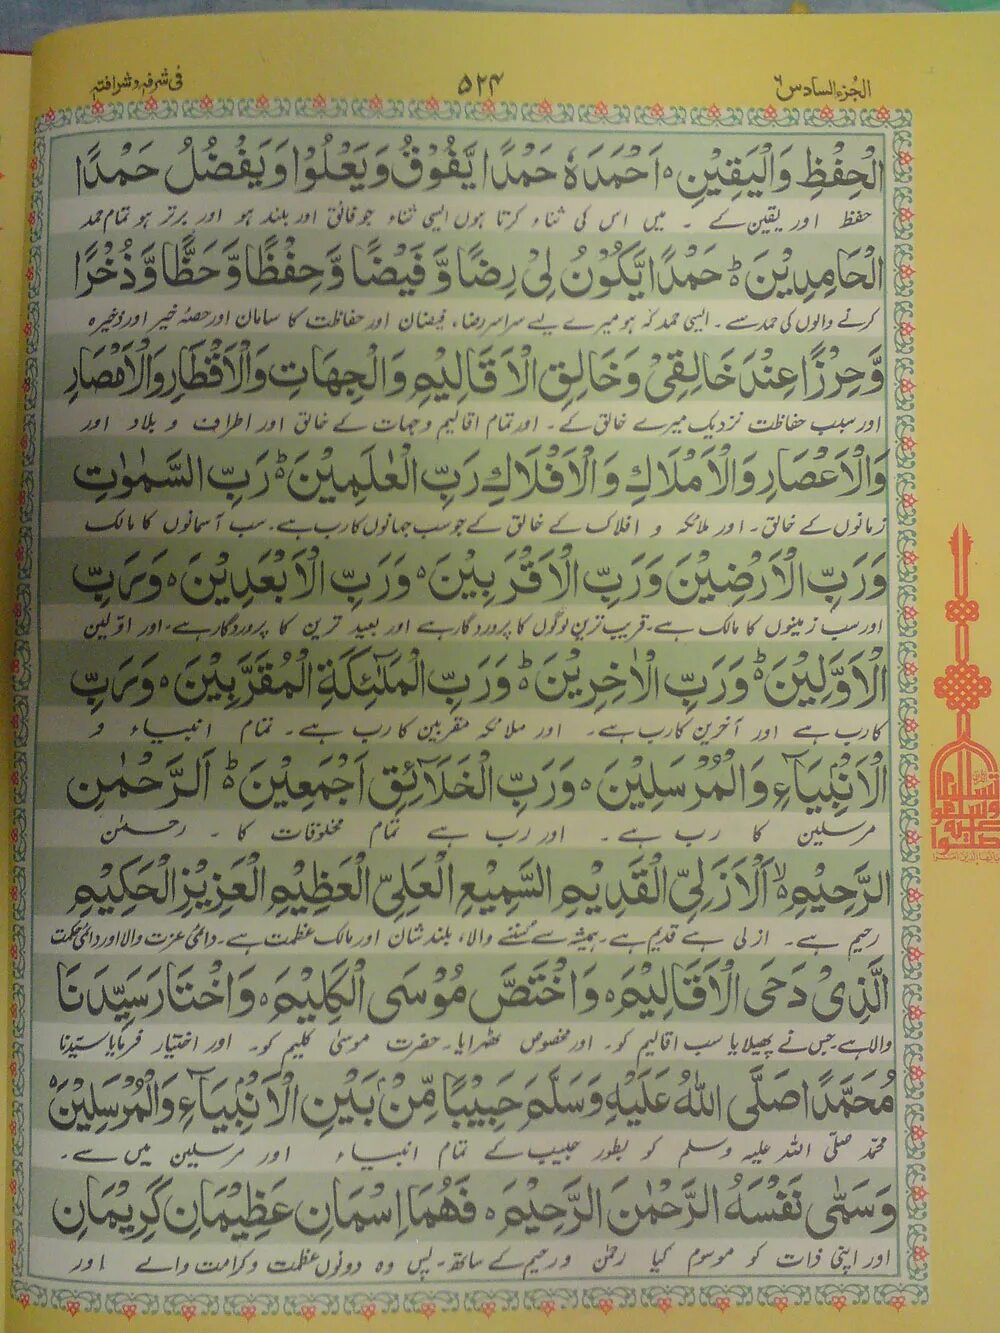 الجُزء السادس ٦
۵۲۴
فی شرفہٖ و شرافتہٖ
الْحِفْظِ وَالْیَقِیْنِ ہ اَحْمَدُہٗ حَمْدًا یَّفُوْقُ وَیَعْلُوْا وَیَفْضُلُ حَمْدًا
حفظ اور یقین کے ۔ میں اس کی ثناء کرتا ہوں ایسی ثناء جو فائق اور بلند ہو اور برتر ہو تمام حمد
الْحَامِدِیْنَ ط حَمْدًا یَّکُوْنُ لِیْ رِضًا وَّ فَیْضًا وَّحِفْظًا وَّحَظًّا وَّذُخْرًا
کرنے والوں کی حمد سے ۔ ایسی حمد کہ ہو میرے لیے سراسر رضاء ، فیضان اور حفاظت کا سامان اور حصۂ خیر اور ذخیرہ
وَّحِرْزًا عِنْدَ خَالِقِیْ وَخَالِقِ الْاَقَالِیْمِ وَالْجِهَاتِ وَالْاَقْطَارِ وَالْاَمْصَارِ
اور سبب حفاظت نزدیک میرے خالق کے ۔ اور تمام اقالیم و جہات کے خالق اور اطراف و بلاد اور
وَالْاَعْصَارِ وَالْاَمْلَاكِ وَالْاَفْلَاكِ رَبِّ الْعٰلَمِیْنَ ط رَبِّ السَّمٰوٰتِ
زمانوں کے خالق ۔ اور ملائکہ و افلاک کے خالق کے جو سب جہانوں کا رب ہے۔ سب آسمانوں کا مالک
وَرَبِّ الْاَرْضِیْنَ وَرَبِّ الْاَقْرَبِیْنَ ہ وَرَبِّ الْاَبْعَدِیْنَ ہ وَرَبِّ
اور سب زمینوں کا مالک ہے۔ قریب ترین لوگوں کا پروردگار ہے اور بعید ترین کا پروردگار ہے۔ اور اوّلین
الْاَوَّلِیْنَ ط وَرَبِّ الْاٰخِرِیْنَ ط وَرَبِّ الْمَلٰٓئِكَةِ الْمُقَرَّبِیْنَ ہ وَرَبِّ
کا رب ہے اور آخرین کا رب ہے ۔ اور ملائکہ مقربین کا رب ہے ۔ تمام انبیاء و
الْاَنْۢبِیَآءِ وَالْمُرْسَلِیْنَ ہ وَرَبِّ الْخَلَآئِقِ اَجْمَعِیْنَ ط اَلرَّحْمٰنِ
مرسلین کا رب ہے ۔ اور رب ہے تمام مخلوقات کا ۔ رحمٰن
الرَّحِیْمِ ہ لا اَلْاَزَلِیِّ الْقَدِیْمِ السَّمِیْعِ الْعَلِیِّ الْعَظِیْمِ الْعَزِیْزِ الْحَكِیْمِ
رحیم ہے ۔ ازلی ہے قدیم ہے۔ ہمیشہ سے سننے والا، بلند شان اور مالک عظمت ہے۔ دائمی عزت والا اور دائمی حکمت
الَّذِیْ دَحَی الْاَقَالِیْمَ ہ وَاخْتَصَّ مُوْسَی الْكَلِیْمَ ہ وَاخْتَارَ سَیِّدَنَا
والا ہے۔ جس نے پھیلایا سب اقالیم کو ۔ اور مخصوص ٹھہرایا ۔ حضرت موسیٰ کلیم کو ۔ اور اختیار فرمایا سیّدنا
مُحَمَّدًا صَلَّی اللهُ عَلَیْهِ وَسَلَّمَ حَبِیْبًا مِّنْۢ بَیْنِ الْاَنْۢبِیَآءِ وَالْمُرْسَلِیْنَ ہ
محمّد صلّی اللہ علیہ وسلم کو بطور حبیب کے تمام انبیاء اور مرسلین میں سے ۔
وَسَمّٰی نَفْسَهُ الرَّحْمٰنَ الرَّحِیْمَ ہ فَهُمَا اِسْمَانِ عَظِیْمَانِ كَرِیْمَانِ
اور اپنی ذات کو موسوم کیا رحمٰن و رحیم کے ساتھ ۔ پس وہ دونوں عظمت و کرامت والے اور